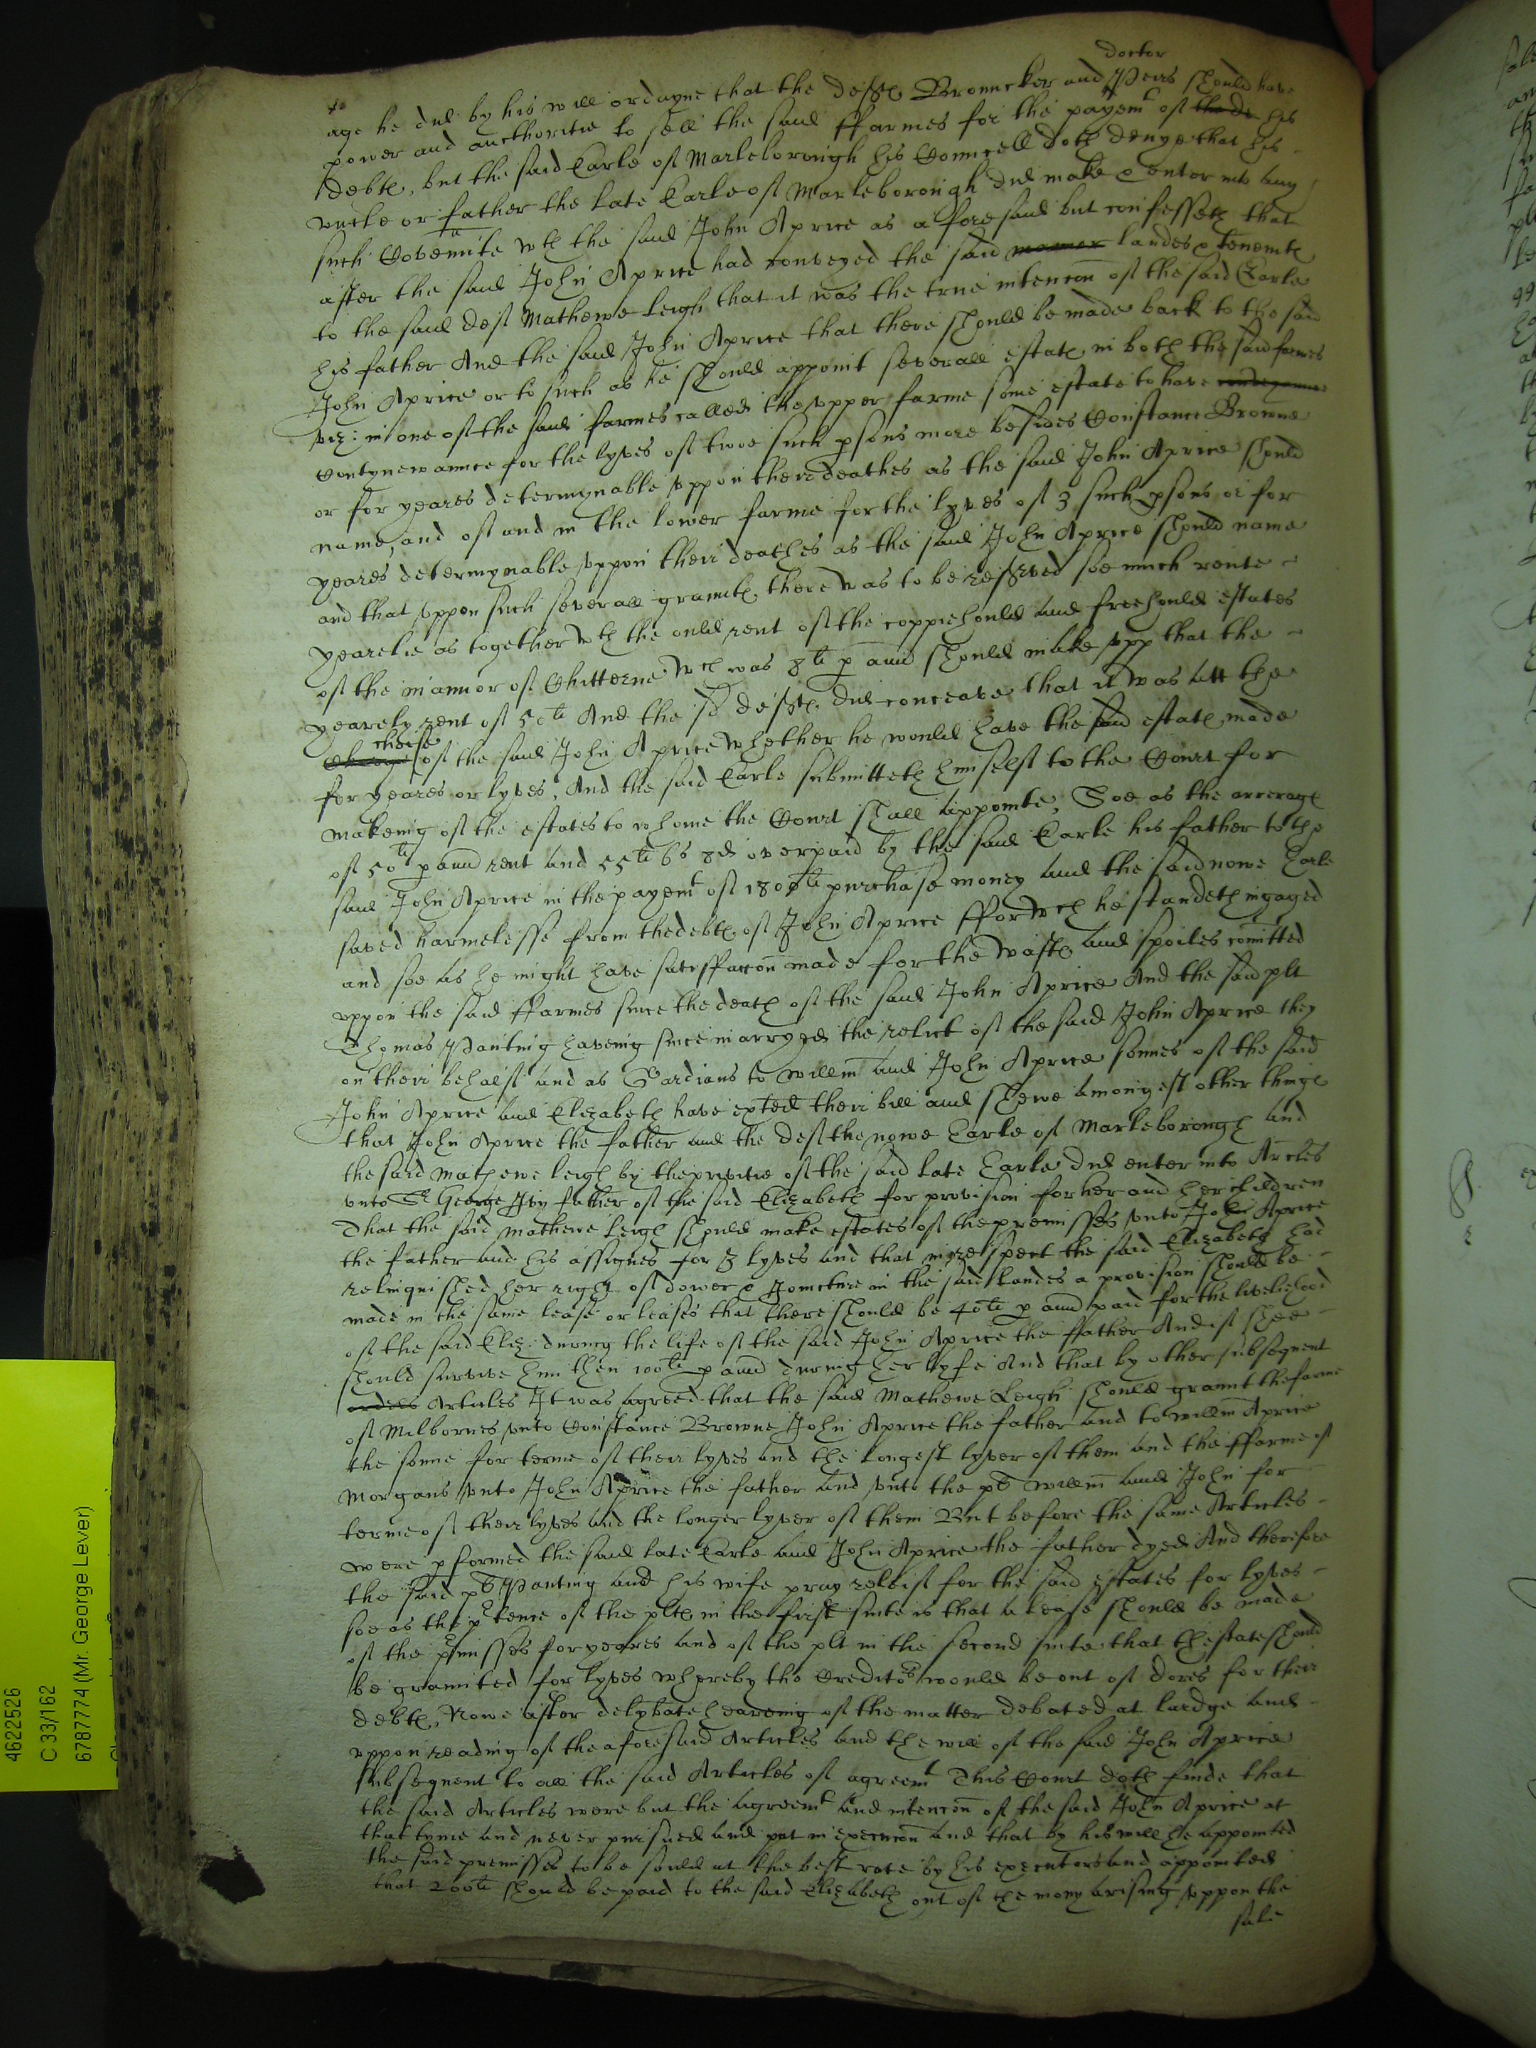 doctor
age he did by his will ordayne that the deftes Brouncker and Peirs should have
power and aucthoritie to sell the said ffarmes for the payemt of the de his
debtes, but the said Earle of Marleborough his Councell doth denye that his
uncle or father the late Earle of Marleborough did make & enter into any
such Covennte wth the said John Aprice as aforesaid but confesseth that
after the said John Aprice had conveyed the said mannor landes & tenemtes
to the said deft Mathewe Leigh that it was the true intencon of the said Earle
his father And the said John Aprice that there should be made back to the said
John Aprice or to such as he should appoint severall estates in both the said farmes
viz: in one of the said farmes called the upper farme some estate to have
Contynewannce for the lyves of twoe such psons more besides Constance Browne
or for yeares determynable uppon their deathes as the said John Aprice should
name, and of and in the lower farme for the lyves of 3 such psons or for
yeares determynable uppon their deathes as the said John Aprice should name
and that uppon such severall grauntes there was to be reserved soe much rente
yearelie as together wth the ould rent of the coppiehould and freehould estates
of the mannor of Chitterne wch was 8li p ann should make upp that the
yearely rent of 50li And the sd deftes did conceave that it was att the
choise
of the said John Aprice whether he would have the said estates made
for yeares or lyves, And the said Earle submitteth himself to the Court for
makeing of the estates to whome the Court shall appointe, Soe as the arrerages
of 50li p ann rent and 55li 6s 8d overpaid by the said Earle his father to the
said John Aprice in the payemt of 1800li purchase money and the said nowe Earle
saved harmelesse from the debtes of John Aprice ffor wch he standeth ingaged
and soe as he might have satisffaccon made for the wastes and spoiles comitted
uppon the said ffarmes since the death of the said John Aprice And the said plt
Thomas Panting haveing since marryed the relict of the said John Aprice they
on their behalf and as Gardians to Willm and John Aprice sonnes of the said
John Aprice and Elizabeth have exted their bill and shewe amongest other thinges
that John Aprice the father and the deft the nowe Earle of Marleborough and
the said Mathewe Leigh by the privitie of the said late Earle did enter into Arcles
unto Sr George Ivy father of the said Elizabeth for provision for her and her children
That the said Mathewe Leigh should make estates of the premisses unto John Aprice
the father and his assignes for 3 lyves and that in respect the said Elizabeth had
relinquished her right of dower & Joincture in the said landes a provision should be
made in the same lease or leases that there should be 40li p ann paid for the livelihood
of the said Eliz: during the life of the said John Aprice the ffather And if shee
should survive him then 100li p ann during her lyfe And that by other subsequent
Articles It was agreed that the said Mathewe Leigh should graunt the farme
of Milbornes unto Constance Browne John Aprice the father and to Willm Aprice
the sonne for terme of their lyves and the longest lyver of them and the ffarme of
Morgans unto John Aprice the father and unto the pts Willm and John for
terme of their lyves and the longer lyver of them But before the same Articles
were pformed the said late Earle and John Aprice the father dyed And therefore
the said pt Panting and his wife pray releif for the said estates for lyves
soe as the ptence of the pltes in the first suite is that a lease should be made
of the pmisses for yeares and of the plt in the second suite that the estate should
be graunted for lyves whereby the Creditors would be out of dores for their
debtes, Nowe after delybate heareing of the matter debated at lardge and
uppon reading of the aforesaid Articles and the will of the said John Aprice
subsequent to all the said Articles of agreemt This Court doth finde that
the said Articles were but the agreemt and intencon of the said John Aprice at
that tyme and never pursued and put in execucon and that by his will he appointed
the said premisses to be sould at the best rate by his executors and appointed
that 200li should be paid to the said Elizabeth out of the mony arising uppon the
sale
4622526
C 33/162
6787774 (Mr. George Lever)